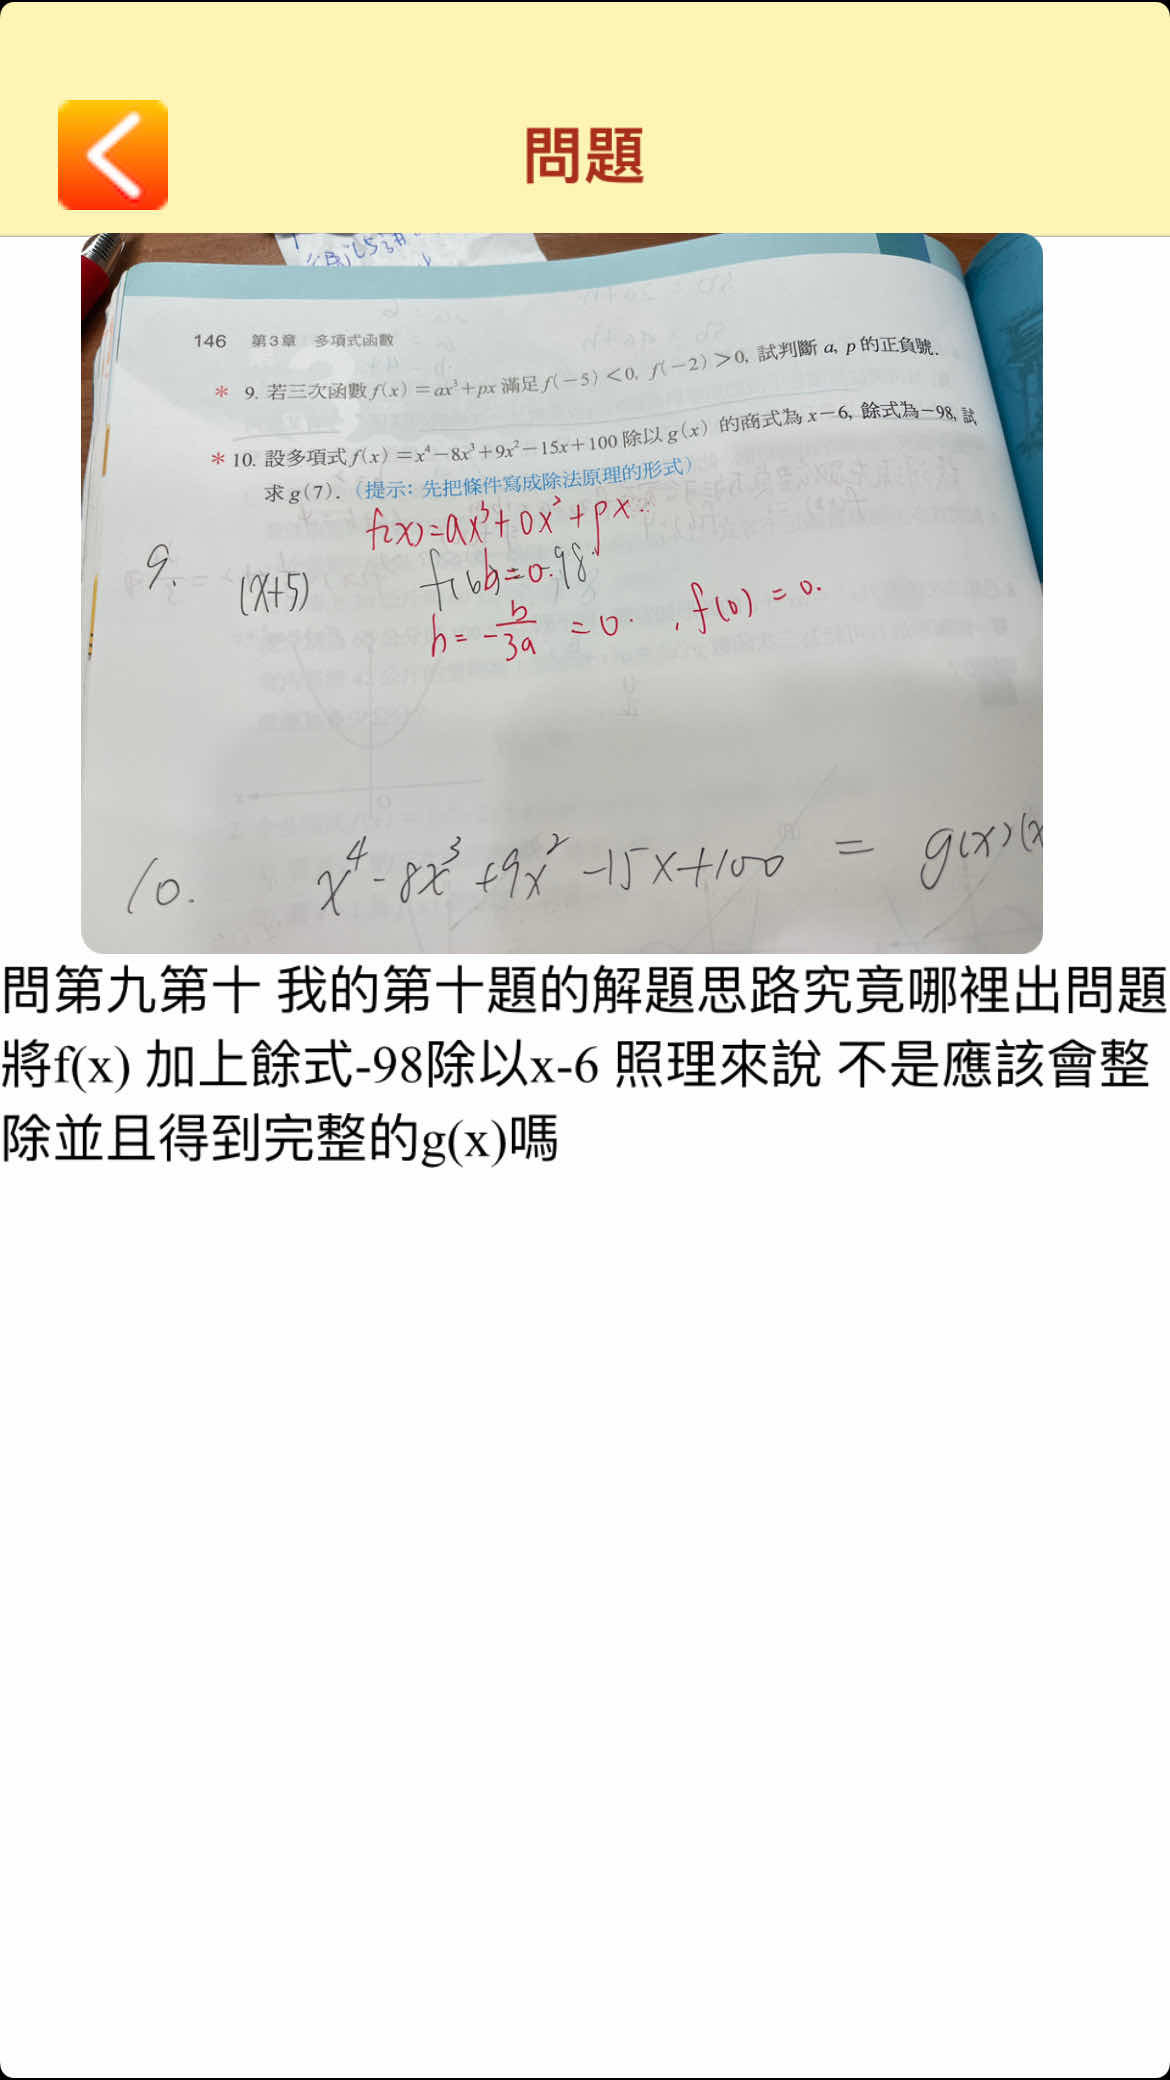 問題
146 第3章 多項式函數
* 9. 若三次函數 f(x)=ax³+px 滿足 f(-5)<0, f(-2)>0, 試判斷 a, p 的正負號.
* 10. 設多項式 f(x)=x⁴-8x³+9x²-15x+100 除以 g(x) 的商式為 x-6, 餘式為-98, 試
求 g(7). (提示: 先把條件寫成除法原理的形式)
f(x)=ax³+0x²+px.
9. (x+5)
b=0.
h=-b/3a=0. , f(0)=0.
10. x⁴-8x³+9x²-15x+100 = g(x)(x
問第九第十 我的第十題的解題思路究竟哪裡出問題
將f(x) 加上餘式-98除以x-6 照理來說 不是應該會整
除並且得到完整的g(x)嗎